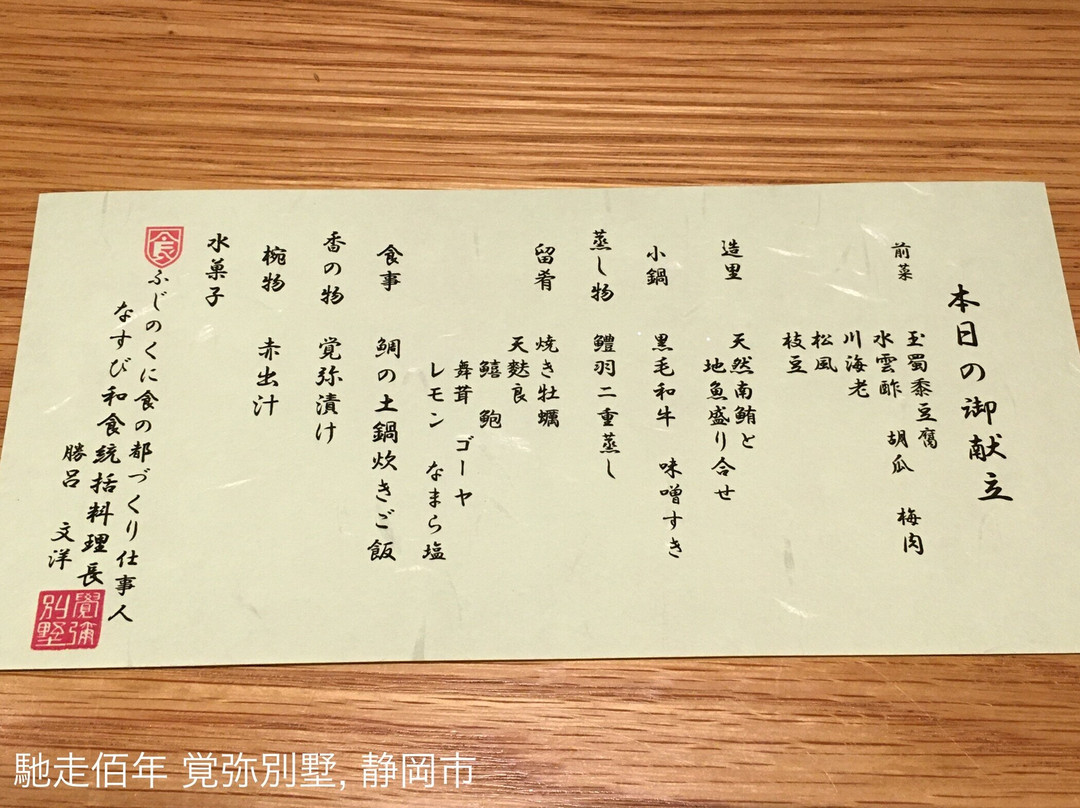 本日の御献立
前菜
玉蜀黍豆腐
水雲酢 胡瓜 梅肉
川海老
松風
枝豆
造里
天然南鮪と
地魚盛り合せ
小鍋 黒毛和牛 味噌すき
蒸し物 鱧羽二重蒸し
留肴
焼き牡蠣
天麩良
鱚 鮑
舞茸 ゴーヤ
レモン なまら塩
食事 鯛の土鍋炊きご飯
香の物 覚弥漬け
椀物 赤出汁
水菓子
食
ふじのくに食の都づくり仕事人
なすび和食統括料理長
勝呂 文洋
覺彌別墅
馳走佰年 覚弥別墅, 静岡市